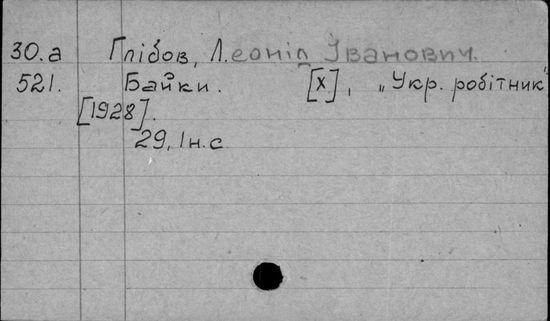 30.а Глібов, Леонід Іванович.
521. Байки. [Х], „Укр. робітник"
[1928].
29, 1 н.с